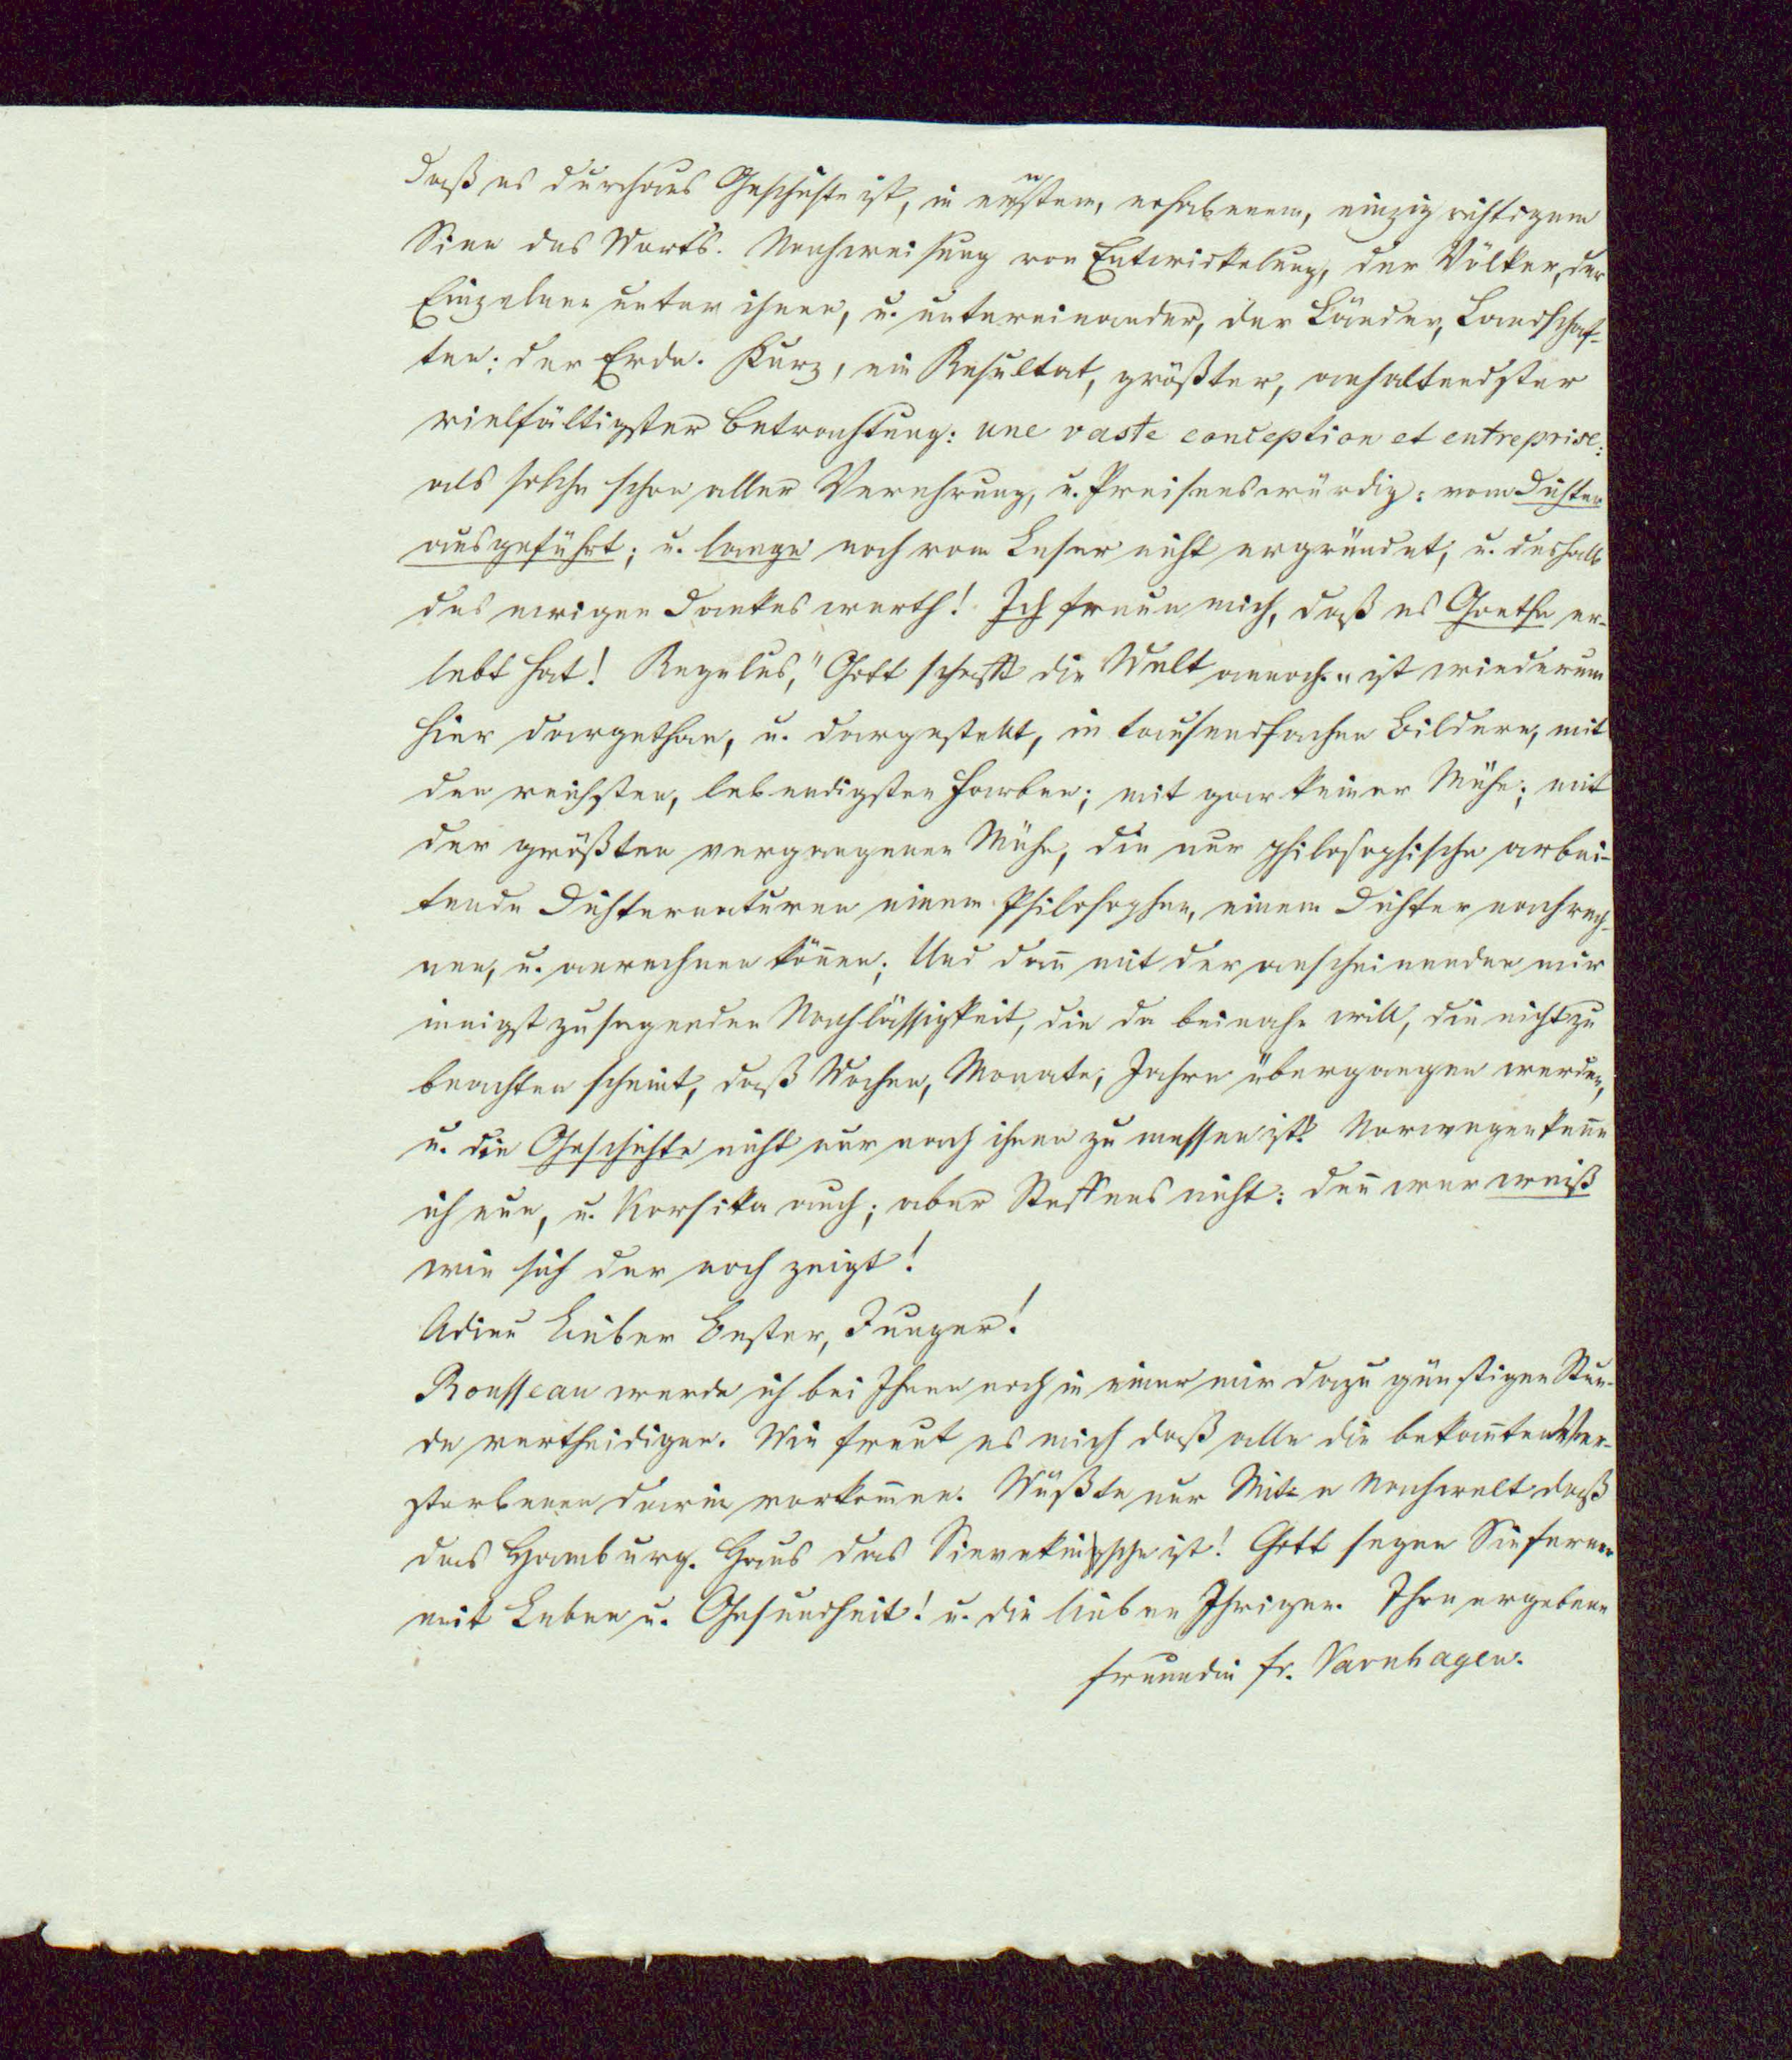 daß es durchaus Geschichte ist, in ernstem, erhabenem, einzig richtigem
Sinn des Worts. Nachweisung von Entwickelung, der Völker, der
Einzelnen unter ihnen, u. untereinander, der Länder, Landschaf-
ten: der Erde. Kurz, ein Resultat, größter, anhaltendster
vielfältigster Betrachtung: une vaste conception et entreprise:
als solche schon aller Verehrung, u. Preisenswürdig: vom Dichter
ausgeführt; u. lange noch vom Leser nicht ergründet, u. deshalb
des ewigen Dankes werth! Ich freue mich, daß es Goethe er-
lebt hat! Regulus, "Gott schafft die Welt annoch" ist wiederum
hier dargethan, u. dargestellt, in tausendfachen Bildern, mit
den reichsten, lebendigsten Farben; mit gar keiner Mühe; mit
der größten vergangenen Mühe, die nur philosophische arbei-
tende Dichternaturen einem Philosophen, einem Dichter nachrech-
nen, u. anrechnen können; Und dann mit der anscheinenden mir
innigst zusagenden Nachlässigkeit, die da beinahe will, die nicht zu
beachten scheint, daß Wochen, Monate, Jahre übergangen werden,
u. die Geschichte nicht nur nach ihnen zu messen ist. Norwegen kenne
ich nun, u. Korsika auch; aber Steffens nicht: denn wer weiß
wie sich der noch zeigt!
Adieu Lieber Bester, Junger!
Rousseau werde ich bei Ihnen noch in einer mir dazu günstigen Stun-
de vertheidigen. Wie freut es mich daß alle die bekannten Ver-
storbenen darin vorkommen. Wüßte nur Mit- u Nachwelt daß
das Hamburg. Haus das Sievekingsche ist! Gott segne Sie ferner
mit Leben u. Gesundheit! u. die lieben Ihrigen. Ihre ergebene
Freundin Fr. Varnhagen.